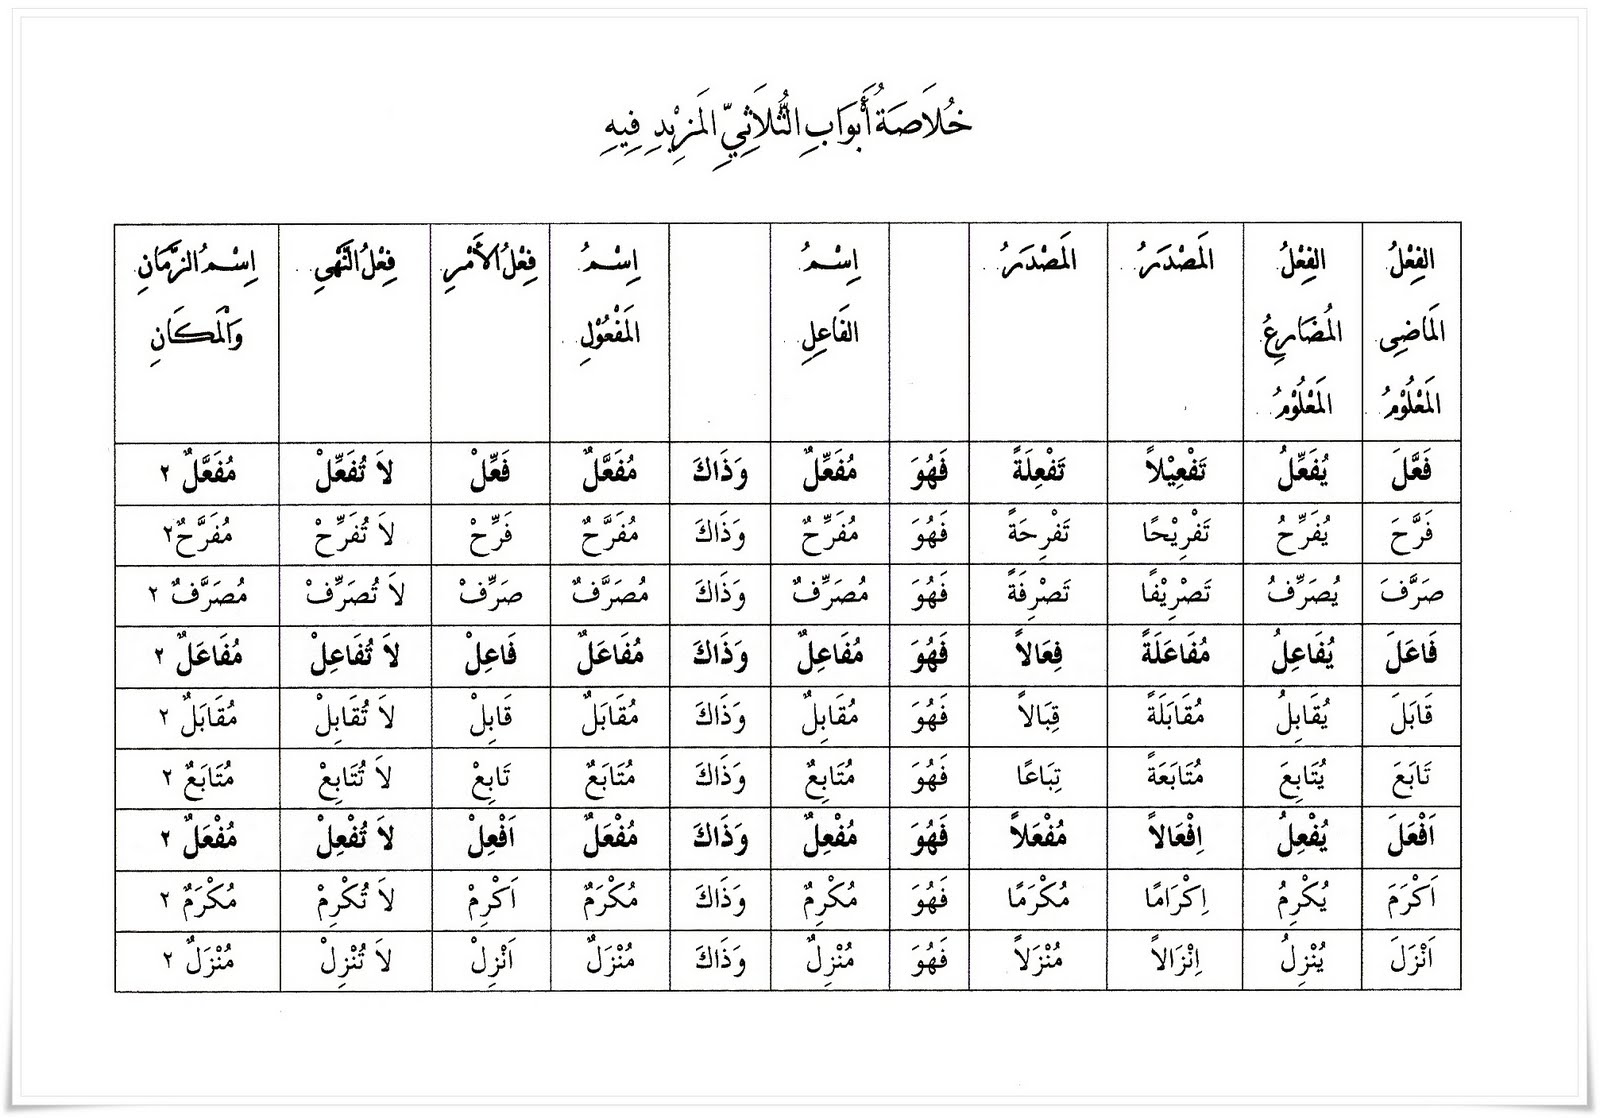 خُلَاصَةُ أَبْوَابِ الثُّلَاثِيِّ الْمَزِيْدِ فِيهِ
الفِعْلُ المَاضِى المَعْلُوْمُ الفِعْلُ المُضَارِعُ المَعْلُوْمُ المَصْدَرُ المَصْدَرُ اِسْمُ الفَاعِلِ اِسْمُ المَفْعُوْلِ فِعْلُ الأَمْرِ فِعْلُ النَّهْيِ اِسْمُ الزَّمَانِ وَالْمَكَانِ
فَعَّلَ يُفَعِّلُ تَفْعِيْلاً تَفْعِلَةً فَهُوَ مُفَعِّلٌ وَذَاكَ مُفَعَّلٌ فَعِّلْ لاَ تُفَعِّلْ مُفَعَّلٌ ٢
فَرَّحَ يُفَرِّحُ تَفْرِيْحًا تَفْرِحَةً فَهُوَ مُفَرِّحٌ وَذَاكَ مُفَرَّحٌ فَرِّحْ لاَ تُفَرِّحْ مُفَرَّحٌ ٢
صَرَّفَ يُصَرِّفُ تَصْرِيْفًا تَصْرِفَةً فَهُوَ مُصَرِّفٌ وَذَاكَ مُصَرَّفٌ صَرِّفْ لاَ تُصَرِّفْ مُصَرَّفٌ ٢
فَاعَلَ يُفَاعِلُ مُفَاعَلَةً فِعَالاً فَهُوَ مُفَاعِلٌ وَذَاكَ مُفَاعَلٌ فَاعِلْ لاَ تُفَاعِلْ مُفَاعَلٌ ٢
قَابَلَ يُقَابِلُ مُقَابَلَةً قِبَالاً فَهُوَ مُقَابِلٌ وَذَاكَ مُقَابَلٌ قَابِلْ لاَ تُقَابِلْ مُقَابَلٌ ٢
تَابَعَ يُتَابِعَ مُتَابَعَةً تِبَاعًا فَهُوَ مُتَابِعٌ وَذَاكَ مُتَابَعٌ تَابِعْ لاَ تُتَابِعْ مُتَابَعٌ ٢
اَفْعَلَ يُفْعِلُ اِفْعَالاً مُفْعَلاً فَهُوَ مُفْعِلٌ وَذَاكَ مُفْعَلٌ اَفْعِلْ لاَ تُفْعِلْ مُفْعَلٌ ٢
اَكْرَمَ يُكْرِمُ اِكْرَامًا مُكْرَمًا فَهُوَ مُكْرِمٌ وَذَاكَ مُكْرَمٌ اَكْرِمْ لاَ تُكْرِمْ مُكْرَمٌ ٢
اَنْزَلَ يُنْزِلُ اِنْزَالاً مُنْزَلاً فَهُوَ مُنْزِلٌ وَذَاكَ مُنْزَلٌ اَنْزِلْ لاَ تُنْزِلْ مُنْزَلٌ ٢